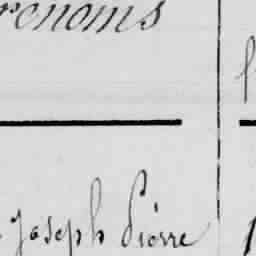 Prénoms
Joseph Pierre